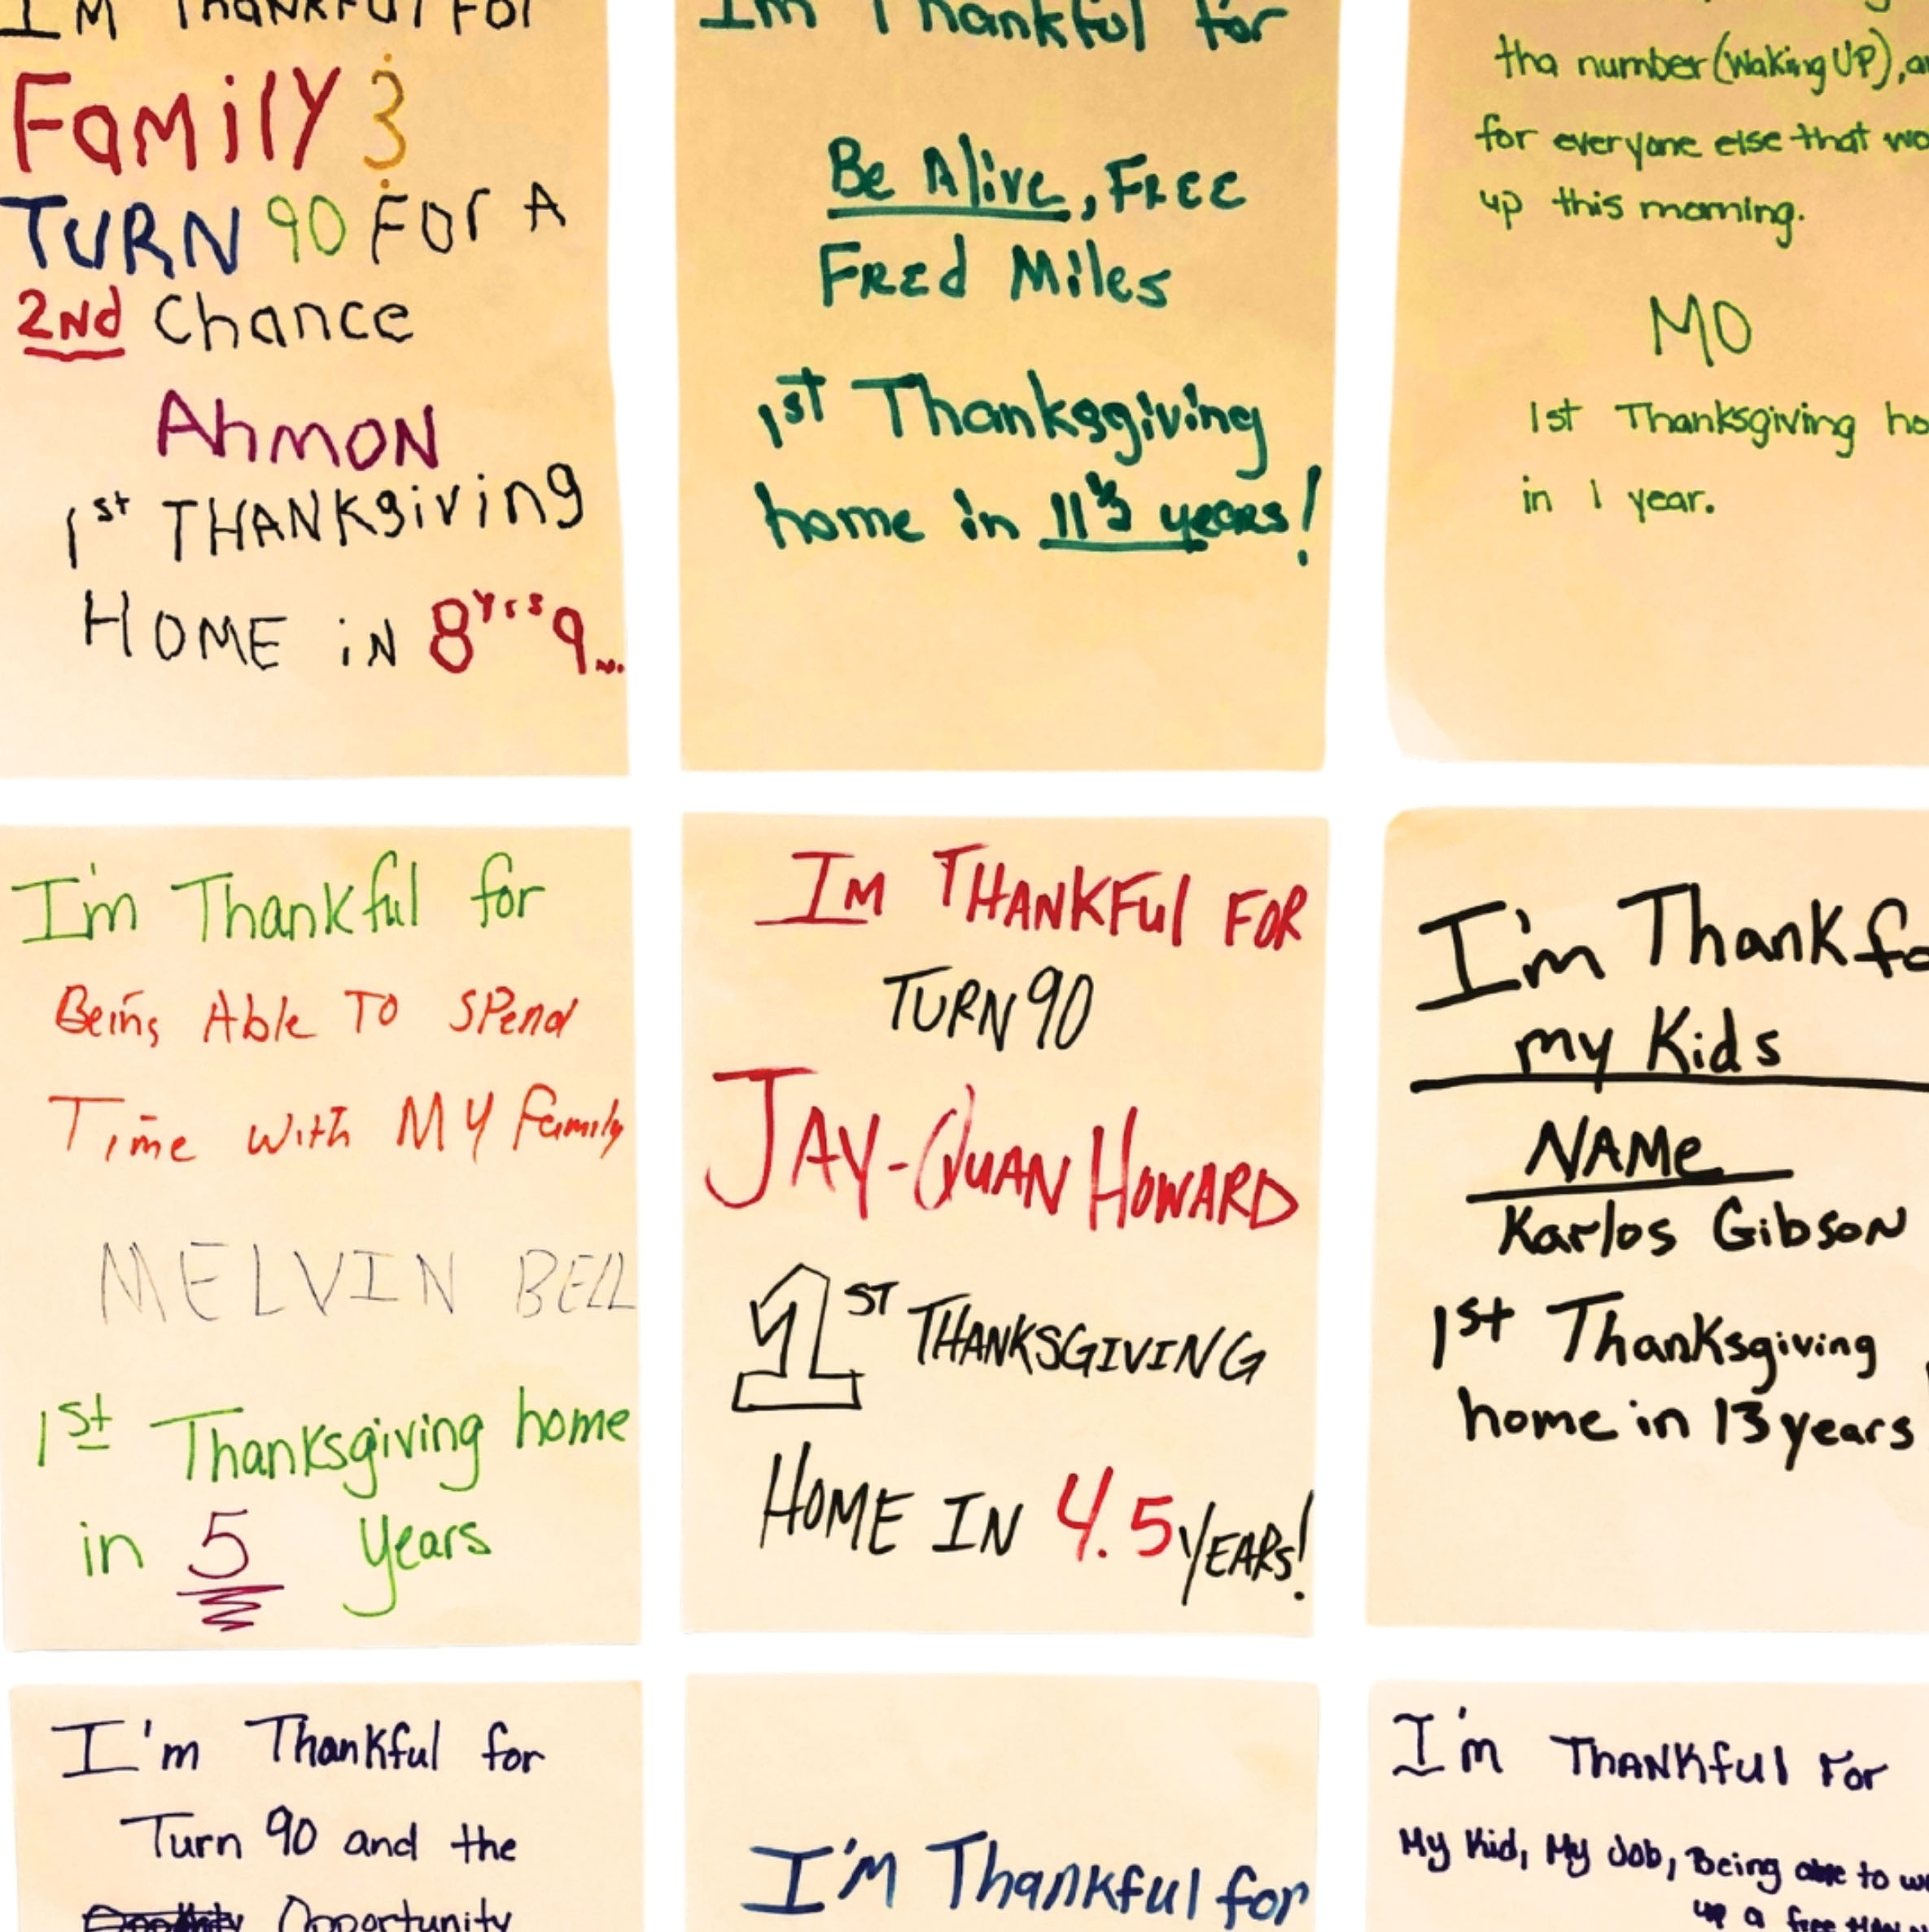 I'M THANKFUl FOr
FAMily &
TURN 90 FOr A
2Nd Chance
AhmON
1st THANKsgiving
HOME iN 8yrs 9
Im Thankful for
Be Alive, FREE
FREd Miles
1st Thanksgiving
home in 11 1/2 years!
tha number (Waking UP),
for everyone else that
up this morning.
MO
1st Thanksgiving
in 1 year.
I'm Thankful for
Being Able TO SPend
Time with MY family
MELVIN BELL
1st Thanksgiving home
in 5 years
IM THANKFUl FOR
TURN 90
JAY-QUAN HOWARD
1ST THANKSGIVING
HOME IN 4.5 YEARS!
I'm Thankf
my Kids
NAMe
Karlos GibsoN
1st Thanksgiving
home in 13 years
I'm Thankful for
Turn 90 and the
Opportunity
I'M Thankful for
I'm THANKful For
My Kid, My Job, Being able to
up a free